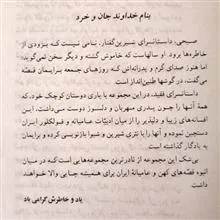 بنام خداوند جان و خرد
صبحی، داستانسرای شیرین‌گفتار، نامی نیست که بزودی از
خاطره‌ها برود. او سالهاست که خاموش گشته و دیگر سخن نمی‌گوید؛
اما هنوز صدای گرم و پدرانه‌اش که روزهای جمعه برایمان قصّه
می‌گفت، در گوشها طنین‌انداز است.
داستانسرای فقید، در این مجموعه با یاری دوستان کوچک خود، که
همهٔ آنها را چون پدری مهربان و دلسوز دوست می‌داشت، این
افسانه‌های زیبا و دلپذیر را از میان ادبیات عامیانه و فولکلور ایران
دستچین نموده و آنها را با نثری شیرین و شیوا بازنویسی کرده و برایمان
به یادگار گذاشته است.
بی‌شک این مجموعه از نادرترین مجموعه‌هایی است که در میان
انبوه قصّه‌های کهن و عامیانهٔ ایران برای همیشه جایی والا خواهند
داشت.
یاد و خاطرش گرامی باد